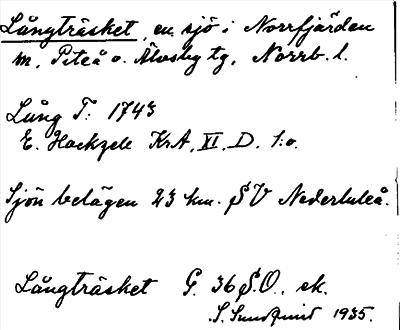 Långträsket, en sjö i Norrfjärden
m, Piteå o. Älvsby tg, Norrb. l.
Lång T: 1743
E. Hackzele KrA, XI, D. 1:o.
Sjön belägen 23 km. SV Nederluleå.
Långträsket G. 36 S.O., ek.
S. Sundquist 1935.